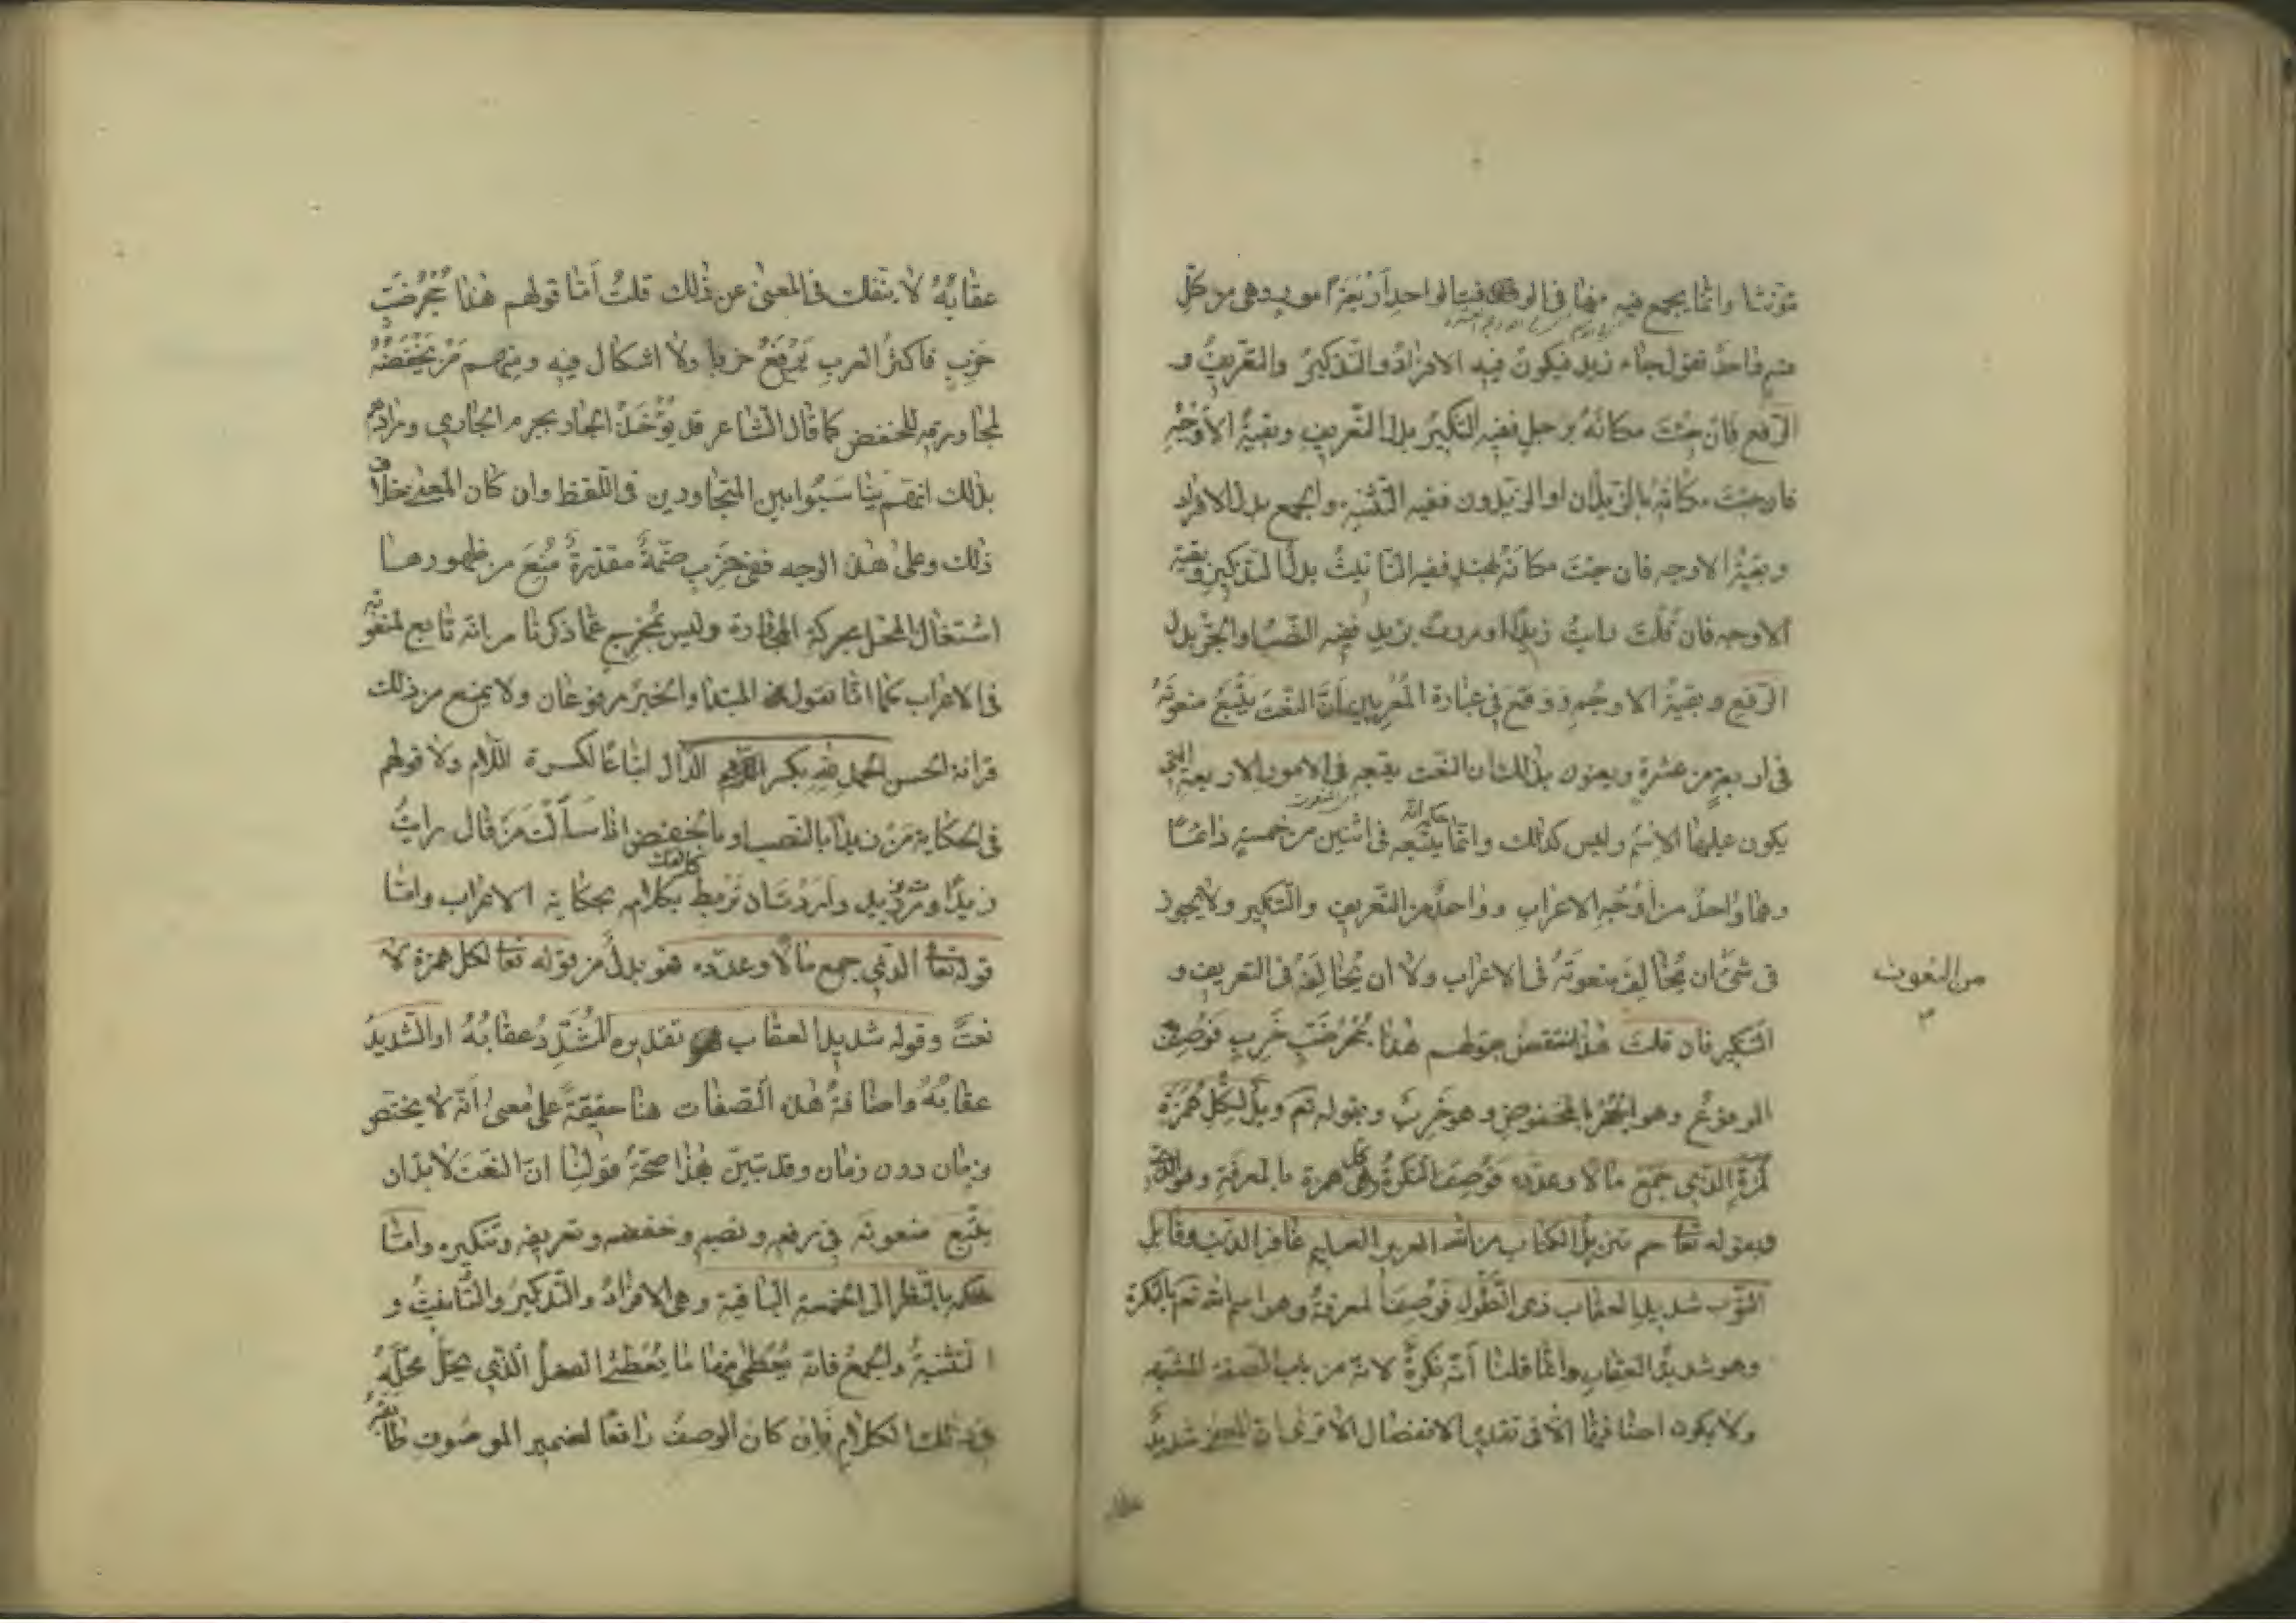 مؤنثا وانما يجمع فيه منها في الوقت الواحد اربعة امور وهي من كل
قسم واحد تقول جاء زيد فيكون فيه الافراد والتذكير والتعريف و
الرفع فان جئت مكانه برجل ففيه التنكير بدل التعريف وبقية الأوجه
فان جئت مكانه بالزيدان او الزيدون ففيه التثنية والجمع بدل الافراد
وبقية الاوجه فان جئت مكانه بهند ففيه التانيث بدل التذكير وبقية
الاوجه فان قلت رايت زيدا او مررت بزيد ففيه النصب او الجر بدل
الرفع وبقية الاوجه ووقع في عبارة المعربين أن النعت يتبع منعوته
في اربعة من عشرة ويعنون بذلك ان النعت يتبعه في الامور الاربعة التي
يكون عليها الاسم وليس كذلك وانما يتبعه في اثنين من خمسة دائما
وهما واحد من أوجه الاعراب وواحد من التعريف والتنكير ولا يجوز
في شئ ان يخالف منعوته في الاعراب ولا ان يخالفه في التعريف و
التنكير فان قلت هذا منتقض بقولهم هذا جحر ضب خرب فوصف
المرفوع وهو الجحر بالمخفوض وهو خرب وبقوله تع ويل لكل همزة
لمزة الذي جمع مالا وعدده فوصف النكرة وهي كل همزة بالمعرفة وهو الذي
وبقوله تعا حم تنزيل الكتاب من الله العزيز العليم غافر الذنب وقابل
التوب شديد العقاب ذي الطول فوصف المعرفة وهو اسم الله تع بالنكرة
وهو شديد العقاب وانما قلنا أنه نكرة لانه من باب الصفة المشبهة
ولا يكون اضافتها الا في تقدير الانفصال الا ترى ان المعنى شديد
من النعوت
عقابه لا ينفك في المعنى عن ذلك قلت أما قولهم هذا جحر ضب
خرب فاكثر العرب يرفع خربا ولا اشكال فيه ومنهم من يخفضه
لمجاورته للخفض كما قال الشاعر قد يؤخذ الجار بجرم الجاري ومرادهم
بذلك ان يناسبوا بين المتجاورين في اللفظ وان كان المعنى خلاف
ذلك وعلى هذا الوجه ففي خرب ضمة مقدرة منع من ظهورها
اشتغال المحل بحركة المجاورة وليس بمخرج عما ذكرنا من انه تابع لمنعوته
في الاعراب كما انا نقول المبتدا والخبر مرفوعان ولا يمنع من ذلك
قرائة الحسن الحمد لله بكسر الدال اتباعا لكسرة اللام ولا قولهم
في الحكاية من زيدا بالنصب او بالخفض اذا سألت من قال رايت
زيدا ومررت بزيد واردت ان تربط كلامك بكلامه بحكاية الاعراب واما
قوله تعا الذي جمع مالا وعدده فهو بدل من قوله تعا لكل همزة لا
نعت وقوله شديد العقاب تقديره المشدد عقابه او الشديد
عقابه واضافة هذه الصفات هنا حقيقة على معنى أنه لا يختص
بزمان دون زمان وقد تبين بهذا صحة قولنا ان النعت لا بد ان
يتبع منعوته في رفعه ونصبه وخفضه وتعريفه وتنكيره واما
حكمه بالنظر الى الخمسة الباقية وهي الافراد والتذكير والتانيث و
التثنية والجمع فانه يعطى منها ما يعطى الفعل الذي يحل محله
في ذلك الكلام فان كان الوصف رافعا لضمير الموصوف طابقه